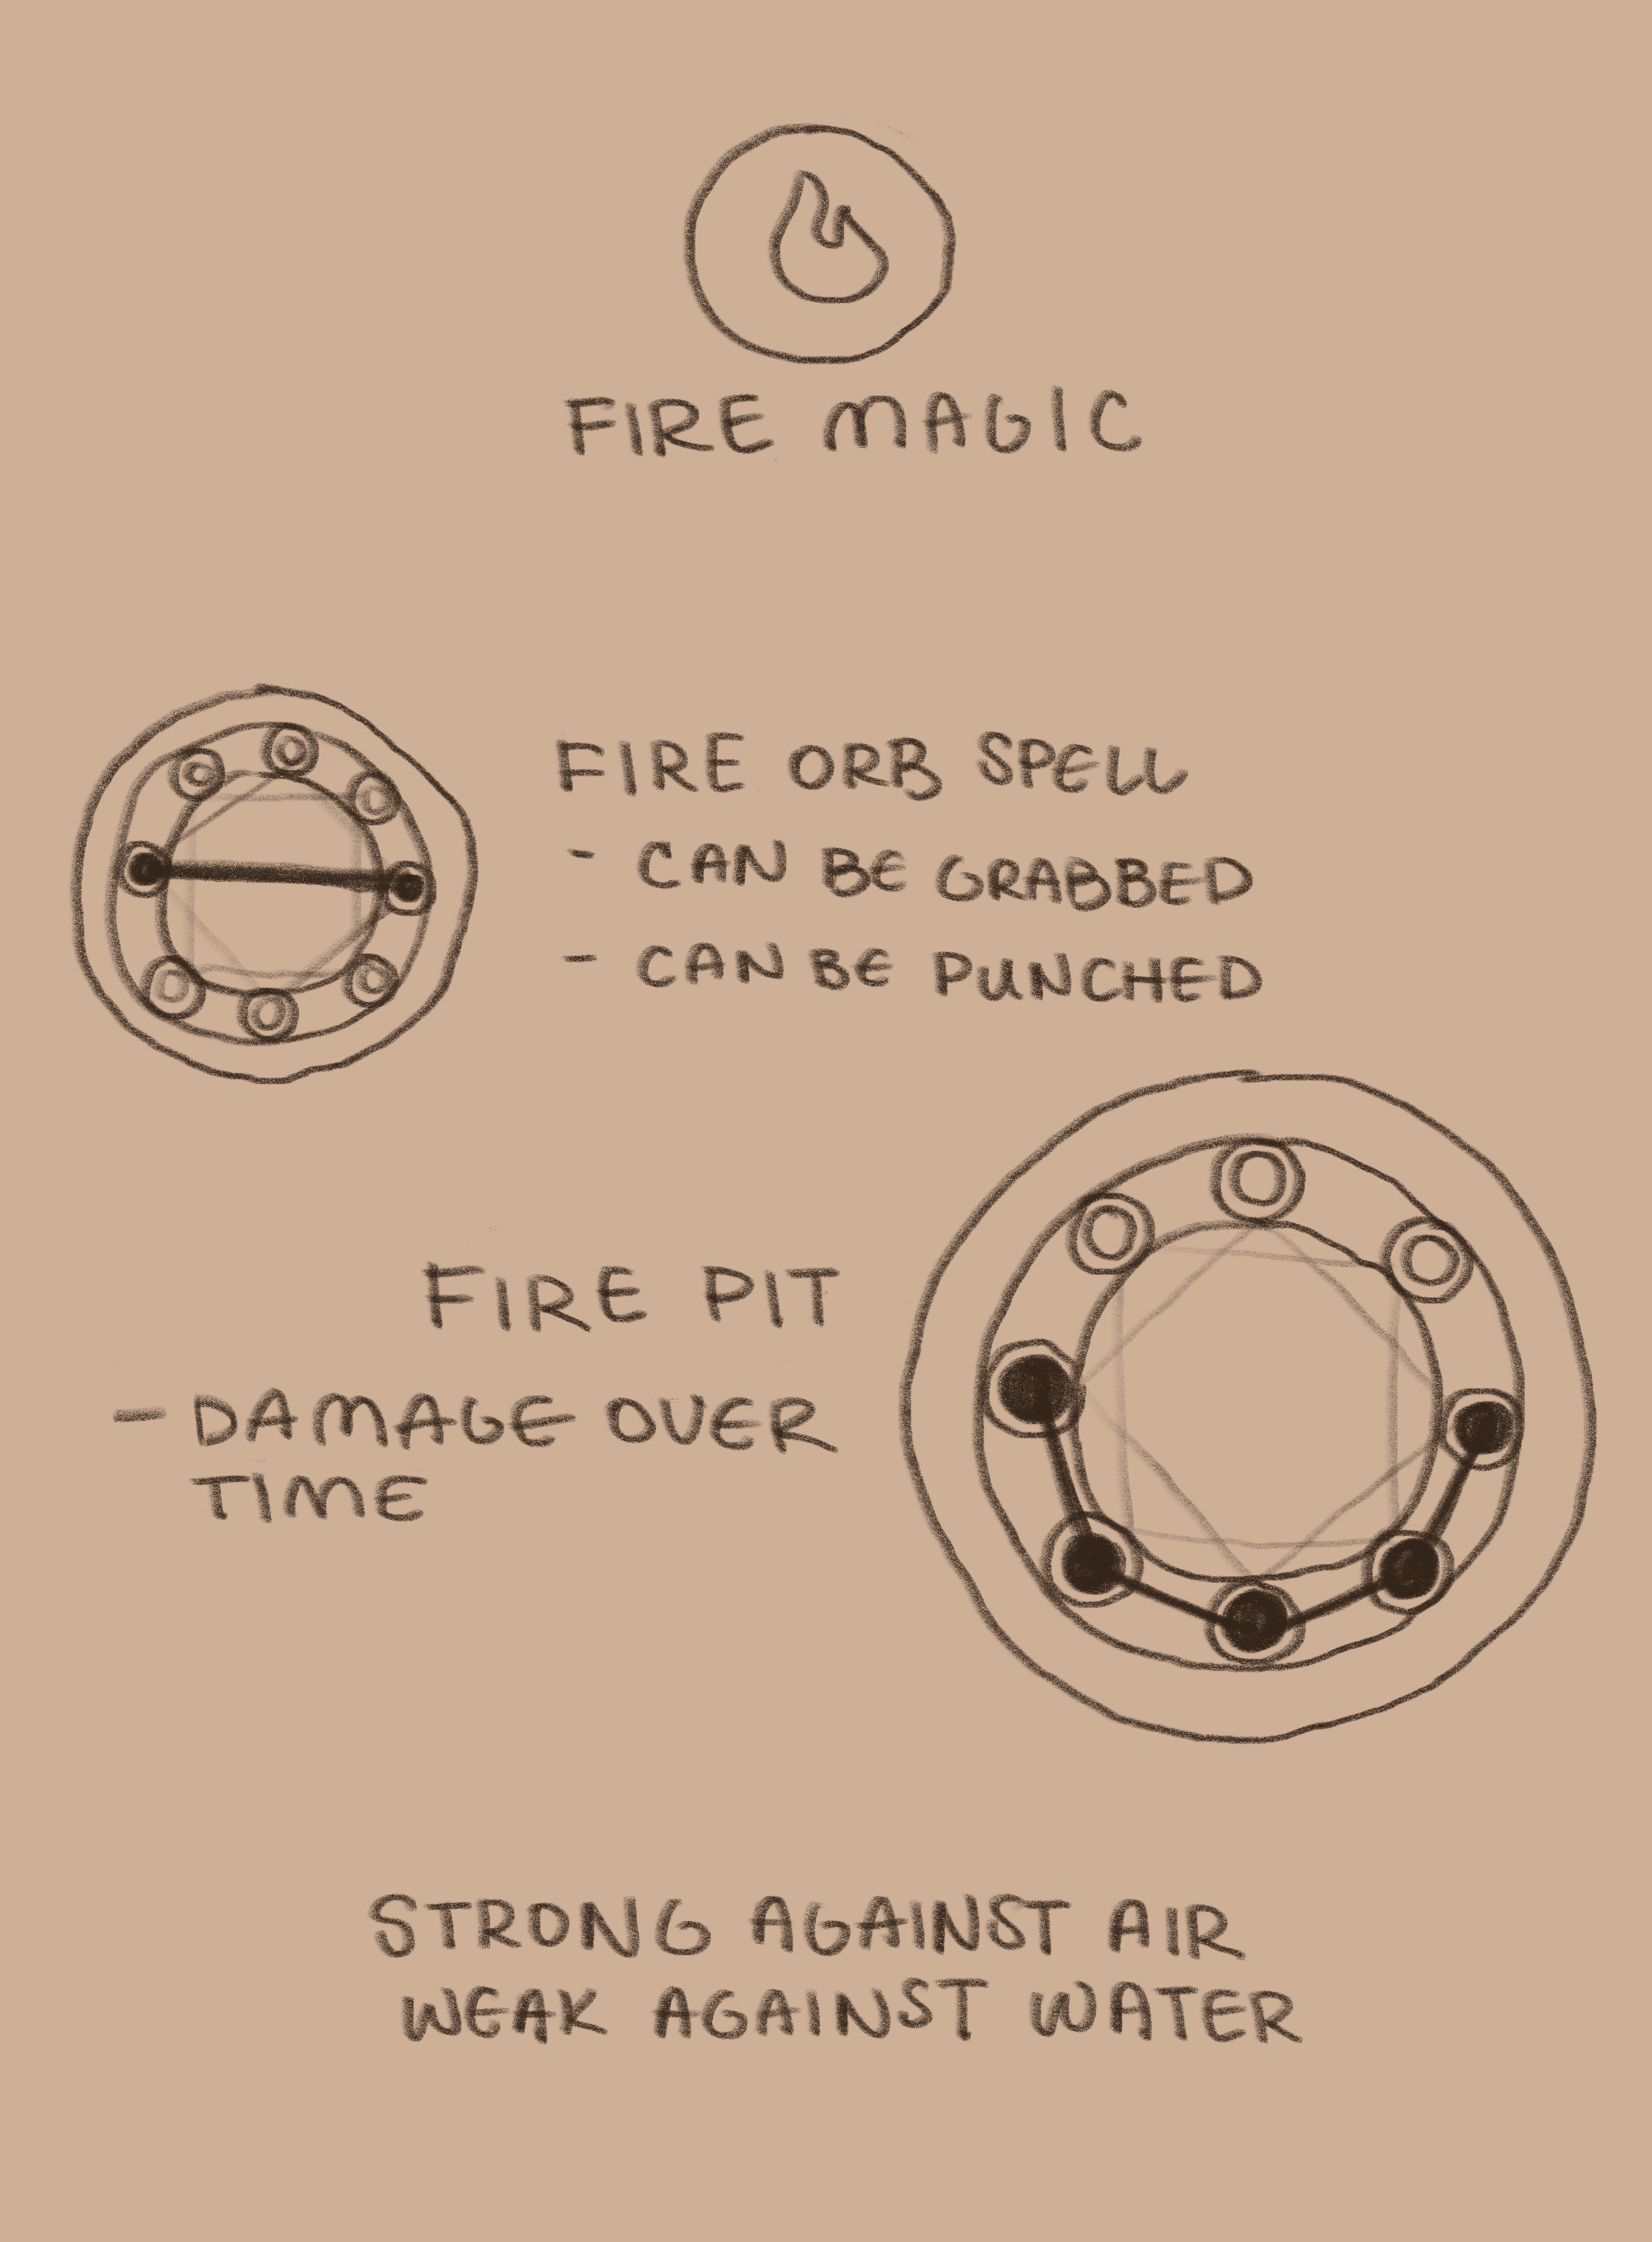 FIRE MAGIC
FIRE ORB SPELL
- CAN BE GRABBED
- CAN BE PUNCHED
FIRE PIT
- DAMAGE OVER
TIME
STRONG AGAINST AIR
WEAK AGAINST WATER